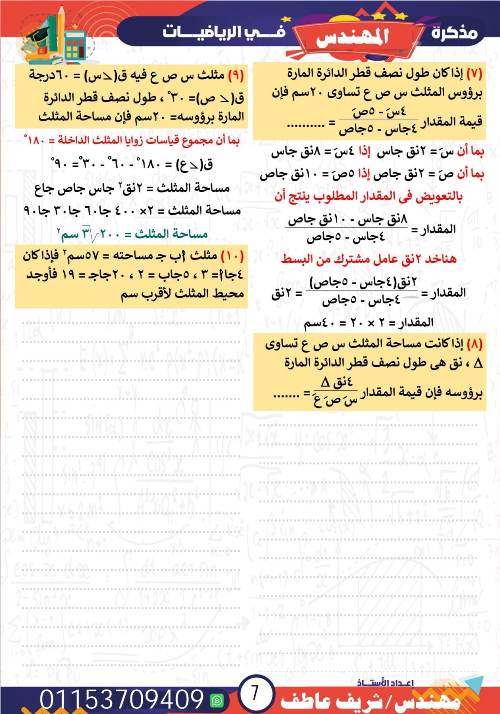 مذكرة المهندس في الرياضيات
(٧) إذا كان طول نصف قطر الدائرة المارة
برؤوس المثلث س ص ع تساوى ٢٠سم فإن
قيمة المقدار ٤سَ - ٥صَ / ٤جاس - ٥جاص = ..........
بما أن سَ = ٢نق جاس إذا ٤سَ = ٨نق جاس
بما أن صَ = ٢نق جاص إذا ٥صَ = ١٠نق جاص
بالتعويض فى المقدار المطلوب ينتج أن
المقدار = ٨نق جاس - ١٠نق جاص / ٤جاس - ٥جاص
هناخد ٢نق عامل مشترك من البسط
المقدار = ٢نق(٤جاس - ٥جاص) / ٤جاس - ٥جاص = ٢نق
المقدار = ٢ × ٢٠ = ٤٠سم
(٨) إذا كانت مساحة المثلث س ص ع تساوى
Δ ، نق هى طول نصف قطر الدائرة المارة
برؤوسه فإن قيمة المقدار ٤نق Δ / سَ صَ عَ = .......
(٩) مثلث س ص ع فيه ق(∠س) = ٦٠درجة
ق(∠ ص)= ٣٠° ، طول نصف قطر الدائرة
المارة برؤوسه= ٢٠سم فإن مساحة المثلث
بما أن مجموع قياسات زوايا المثلث الداخلة = ١٨٠°
ق(∠ع) = ١٨٠° - ٦٠° - ٣٠°= ٩٠°
مساحة المثلث = ٢نق٢ جاس جاص جاع
مساحة المثلث = ٢× ٤٠٠ جا٦٠ جا٣٠ جا٩٠
مساحة المثلث = ٢٠٠√٣ سم٢
(١٠) مثلث أب جـ مساحته = ٥٧سم٢ فإذا كان
٤جاأ= ٣ ، ٥جاب = ٢ ، ٢٠جاجـ = ١٩ فأوجد
محيط المثلث لأقرب سم
إعداد الأستاذ
مهندس/ شريف عاطف
7
01153709409